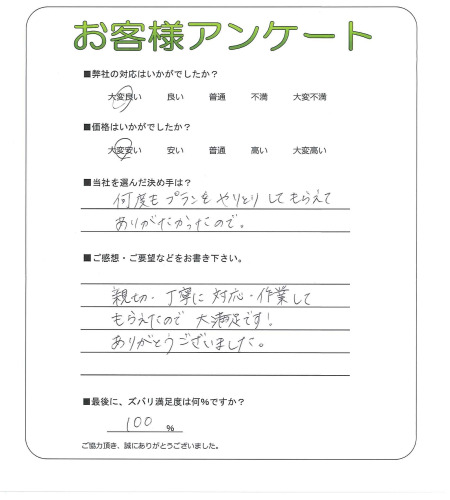 お客様アンケート
■弊社の対応はいかがでしたか？
大変良い 良い 普通 不満 大変不満
■価格はいかがでしたか？
大変安い 安い 普通 高い 大変高い
■当社を選んだ決め手は？
何度もプランをやりとりしてもらえて
ありがたかったので。
■ご感想・ご要望などをお書き下さい。
親切・丁寧に対応・作業して
もらえたので大満足です！
ありがとうございました。
■最後に、ズバリ満足度は何％ですか？
100 %
ご協力頂き、誠にありがとうございました。